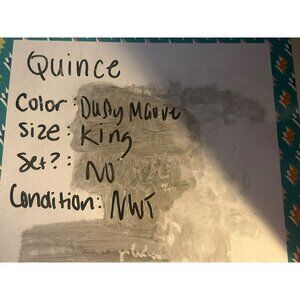 Quince
Color: Dusty Mauve
Size: King
Set?: No
Condition: NWT